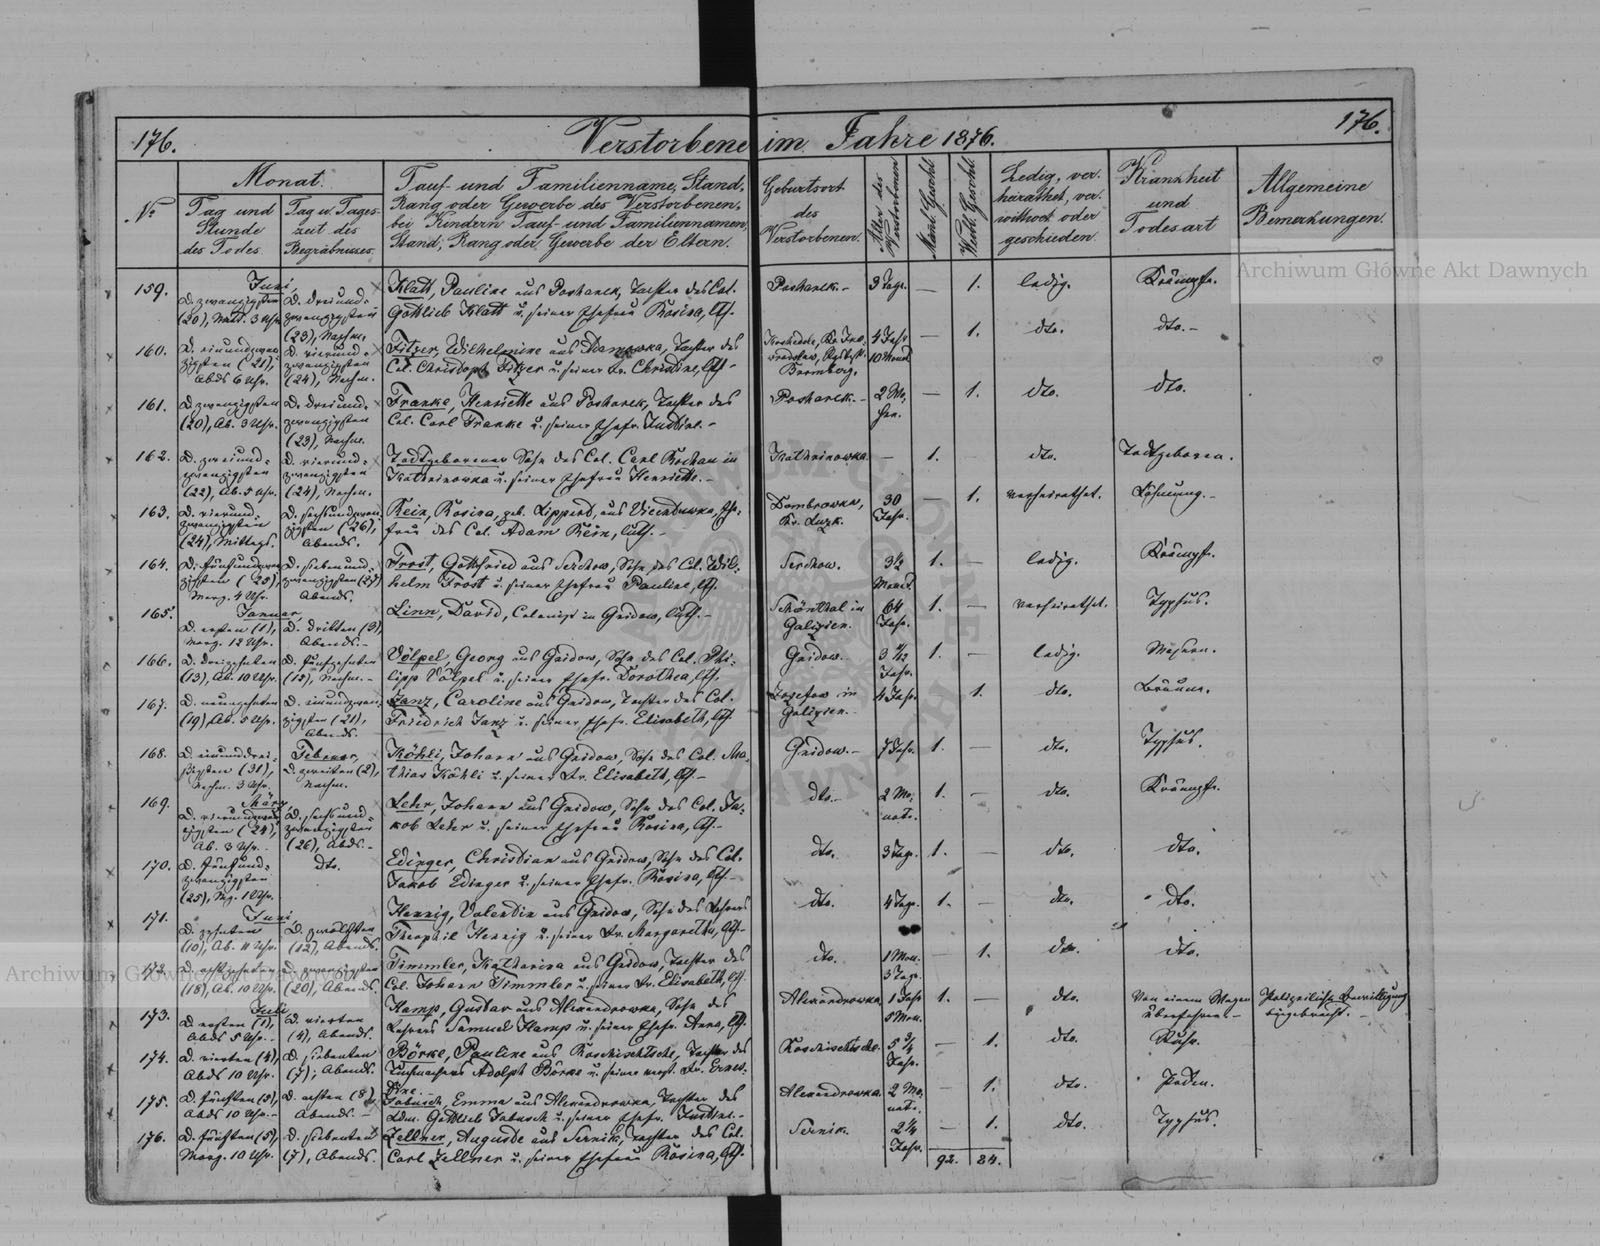 176.
Verstorbene im Jahre 1876.
176.
No
Monat.
Tag und
Stunde
des Todes
Tag u. Tages-
zeit des
Begräbnisses.
Tauf- und Familienname, Stand,
Rang oder Gewerbe des Verstorbenen,
bei Kindern Tauf- und Familiennamen,
Stand, Rang oder Gewerbe der Eltern.
Geburtsort
des
Verstorbenen.
Alter des
Verstorbenen
Männl. Geschl.
Weibl. Geschl.
Ledig, ver-
heirathet, ver-
wittwet oder
geschieden.
Krankheit
und
Todesart
Allgemeine
Bemerkungen.
Archiwum Główne Akt Dawnych
159.
Juni,
D. zwanzigsten
(20), 3 Uhr
D. dreiund-
zwanzigsten
(23), Nachm.
Klatt, Pauline aus Poshareck, Tochter des Col.
Gottlieb Klatt u. seiner Ehefrau Rosina,
Poshareck.-
3 Tage.
—
1.
ledig.
Krämpfe.
160.
D. einundzwan-
zigsten (21),
Abds 6 Uhr.
D. vierund-
zwanzigsten
(24), Nachm.
Fitzer, Wilhelmine aus Adamowka, Tochter des
Col. Christoph Fitzer u. seiner Fr. Christine,
Bromberg.
4 Jahr
10 Monat
—
1.
dto.
dto.-
161.
D. zwanzigsten
(20), Ab. 3 Uhr.
D. dreiund-
zwanzigsten
(23), Nachm.
Franke, Henriette aus Poshareck, Tochter des
Col. Carl Franke u. seiner Ehefr. Justine.-
Poshareck.-
—
1.
dto.
dto.
162.
D. zweiund-
zwanzigsten
(22), Ab. 5 Uhr.
D. vierund-
zwanzigsten
(24), Nachm.
Todtgeborener Sohn des Col. Carl Rochau in
Kathrinowka u. seiner Ehefrau Henriette.-
Kathrinowka.
—
1.
dto.
Todtgeboren.
163.
D. vierund-
zwanzigsten
(24), Mittags.
D. sechsundzwan-
zigsten (26),
Abends.
Rein, Rosina, geb. Lippert, aus Vincentuwka, Ehe-
frau des Col. Adam Rein, luth.-
Dombrowka,
Kr. Luzk.
30
Jahr.
—
1.
verheirathet.
164.
D. fünfundzwan-
zigsten (25),
Morg. 4 Uhr.
D. siebenund-
zwanzigsten (27)
Abends.
Frost, Gottfried aus Serchow, Sohn des Col. Wil-
helm Frost u. seiner Ehefrau Pauline,
Serchow.
3½
Monat.
1.
—
ledig.
Krämpfe.
165.
Januar,
D. ersten (1),
Morg. 12 Uhr.
D. dritten (3),
Abends.-
Linn, David, Colonist in Gnidow, luth.-
Schönthal in
Galizien.
64
Jahr.
1.
—
verheirathet.
Typhus.
166.
D. dreizehnten
(13), Ab. 10 Uhr.
D. fünfzehnten
(15), Nachm.-
Völpel, Georg aus Gnidow, Sohn des Col. Phi-
lipp Völpel u. seiner Ehefr. Dorothea,
Gnidow.
Jahr.
1.
—
ledig.
Masern.
167.
D. neunzehnten
(19), Ab. 5 Uhr.
D. einundzwan-
zigsten (21),
Abends.
Janz, Caroline aus Gnidow, Tochter des Col.
Friedrich Janz u. seiner Ehefr. Elisabeth,
Josefow in
Galizien.
4 Jahr.
1.
dto.
Bräune.
168.
D. einunddrei-
ßigsten (31),
Nachm. 3 Uhr.
Februar,
D. zweiten (2),
Nachm.
Köhli, Johann aus Gnidow, Sohn des Col. Ma-
thias Köhli u. seiner Fr. Elisabeth,
Gnidow.-
7 Jahr.
1.
—
dto.
Typhus.
169.
März,
D. vierundzwan-
zigsten (24),
Ab. 3 Uhr.
D. sechsund-
zwanzigsten
(26), Abds.-
Lehr, Johann aus Gnidow, Sohn des Col. Ja-
kob Lehr u. seiner Ehefrau Rosina,
dto.-
2 Mo-
nat.
1.
—
dto.
Krämpfe.
170.
D. fünfund-
zwanzigsten
(25), Mrg. 1 Uhr.
dto.
Edinger, Christian aus Gnidow, Sohn des Col.
Jakob Edinger u. seiner Ehefr. Rosina,
dto.
3 Tage.
1.
—
dto.
dto.
171.
Juni,
D. zehnten
(10), Ab. 11 Uhr.
D. zwölften
(12), Abends.
Hennig, Valentin aus Gnidow, Sohn des Lehrers
Theophil Hennig u. seiner Fr. Margaretha,
dto.
4 Tage.
1.
—
dto.
dto.
172.
D. achtzehnten
(18), Ab. 10 Uhr.
D. zwanzigsten
(20), Abends.
Timmler, Katharina aus Gnidow, Tochter des
Col. Johann Timmler u. seiner Fr. Elisabeth,
dto.
1 Mon.
3 Tage.
—
1.
dto.
dto.
Archiwum Główne Akt Dawnych
173.
Juli,
D. ersten (1),
Abds 5 Uhr.
D. vierten
(4), Abends.
Hamp, Gustav aus Alexandrowka, Sohn des
Lehrers Samuel Hamp u. seiner Ehefr. Anna,
Alexandrowka.
1 Jahr
8 Mon.
1.
—
dto.
Von einem Wagen
überfahren.-
Polizeiliche Bewilligung
beigebracht.-
174.
D. vierten (4),
Abds 10 Uhr.
D. siebenten
(7), Abends.
Börke, Pauline aus Roschischtsche, Tochter des
Tuchmachers Adolph Börke u. seiner Fr. Ernes-
tine.-
Roschischtsche.
5 ¾
Jahr.
—
1.
dto.
Ruhr.
175.
D. fünften (5),
Abds 10 Uhr.-
D. achten (8),
Abends.-
Jabusch, Emma aus Alexandrowka, Tochter des
Ldm. Gottlieb Jabusch u. seiner Ehefr. Justine.-
Alexandrowka.
2 Mo-
nat.
—
1.
dto.
Pocken.
176.
D. fünften (5),
Morg. 10 Uhr.
D. siebenten
(7), Abends.
Zellner, Auguste aus Sernik, Tochter des Col.
Carl Zellner u. seiner Ehefrau Rosina,
Sernik.
2¼
Jahr.
—
1.
dto.
Typhus.
92.
84.